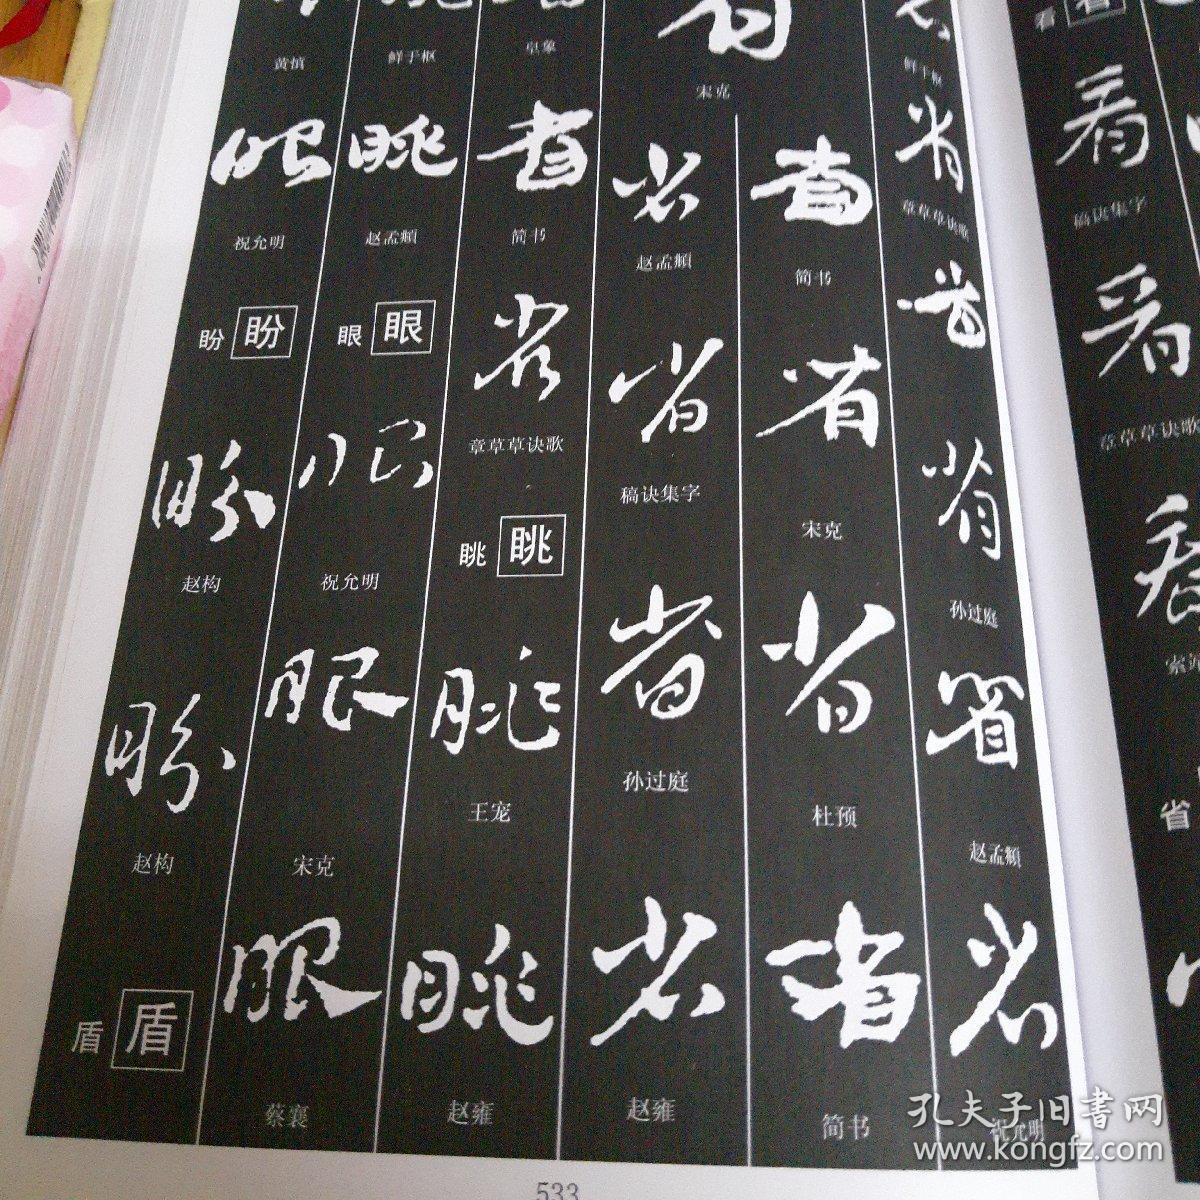 看
稿诀集字
章草草诀歌
省
鲜于枢
省
章草草诀歌
省
省
孙过庭
省
赵孟頫
省
祝允明
省
简书
省
宋克
省
杜预
省
简书
宋克
省
赵孟頫
省
稿诀集字
省
孙过庭
省
赵雍
皇象
省
简书
省
章草草诀歌
眺 眺
眺
王宠
眺
赵雍
鲜于枢
眺
赵孟頫
眼 眼
眼
祝允明
眼
宋克
眼
蔡襄
黄慎
眼
祝允明
盼 盼
盼
赵构
盼
赵构
盾 盾
533
孔夫子旧书网
www.kongfz.com